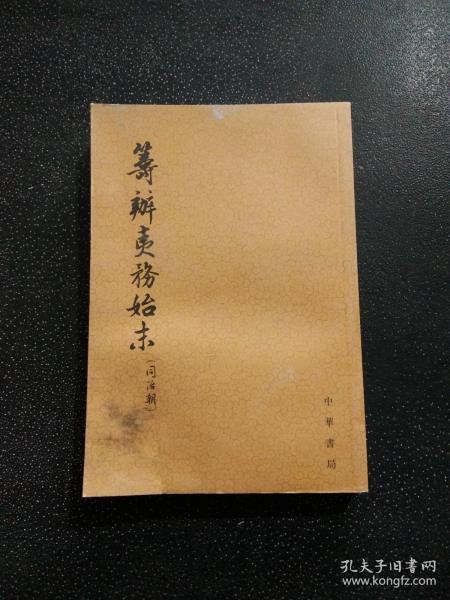 籌辦夷務始末
(同治朝)
中華書局
孔夫子旧书网
www.kongfz.com